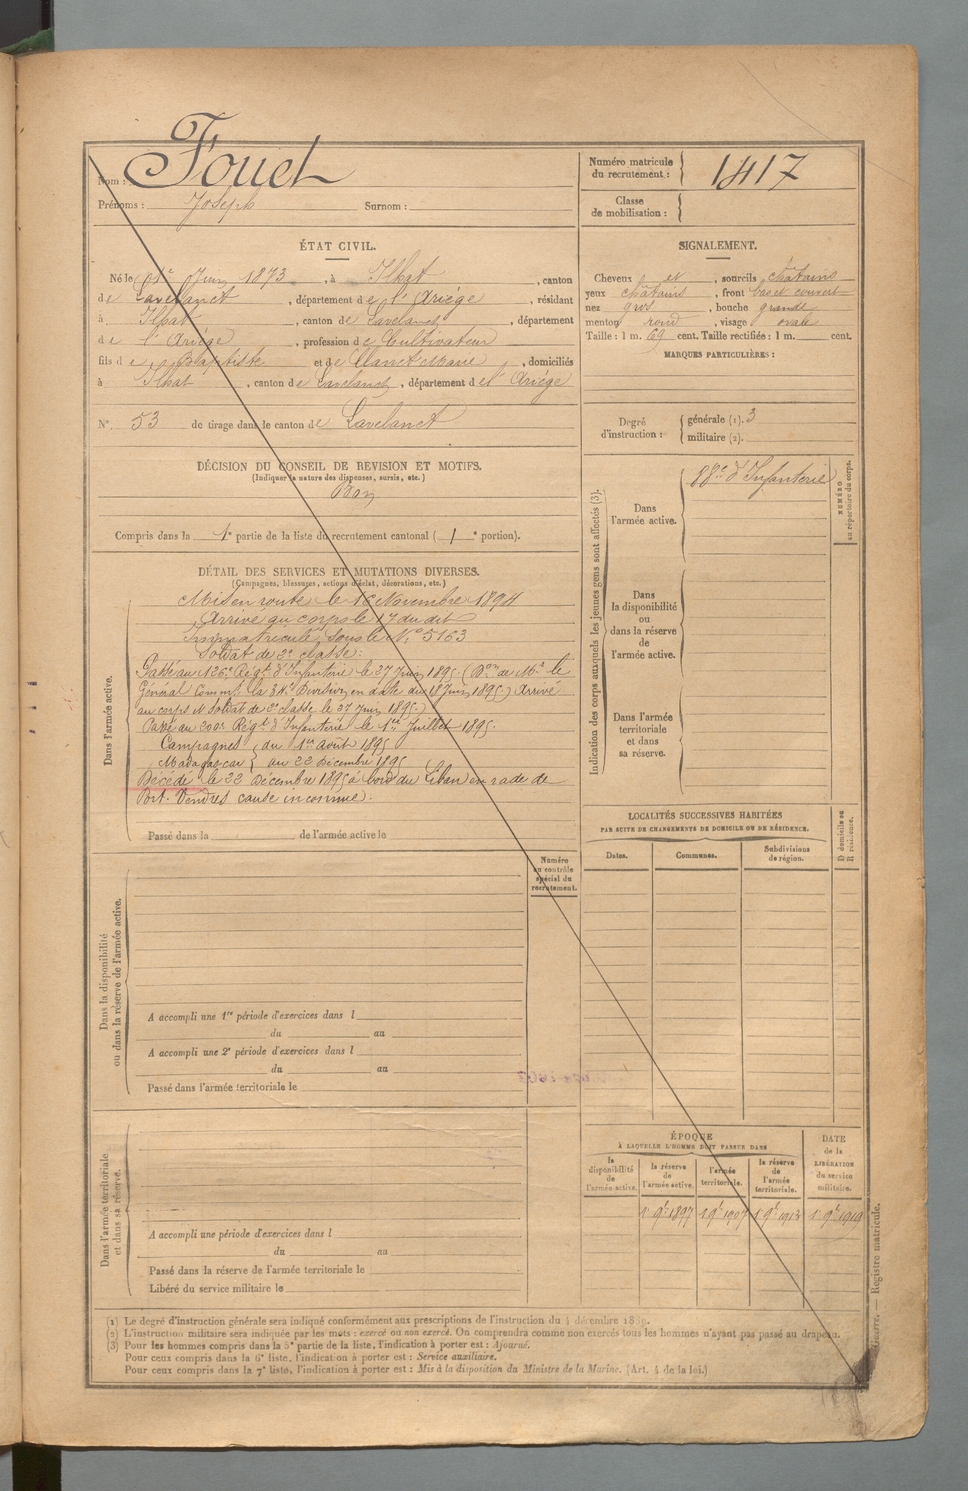 Nom : Fouet
Prénoms : Joseph Surnom :
Numéro matricule
du recrutement : 1417
Classe
de mobilisation :
ÉTAT CIVIL.
Né le 1er Juin 1873, à Ilhat, canton
de Lavelanet, département de l'Ariège, résidant
à Ilhat, canton de Lavelanet, département
de l'Ariège, profession de Cultivateur
fils de Baptiste et de Clanet Marie, domiciliés
à Ilhat, canton de Lavelanet, département de l'Ariège
N° 53 de tirage dans le canton de Lavelanet
DÉCISION DU CONSEIL DE REVISION ET MOTIFS.
(Indiquer la nature des dispenses, sursis, etc.)
Bon
Compris dans la 1e partie de la liste du recrutement cantonal ( 1 e portion).
DÉTAIL DES SERVICES ET MUTATIONS DIVERSES.
(Campagnes, blessures, actions d'éclat, décorations, etc.)
Dans l'armée active.
Mis en route le 16 Novembre 1894
Arrivé au corps le 17 du dit
Immatriculé sous le N° 5163
Soldat de 2e classe :
Passé au 126e Régt d'Infanterie le 27 Juin 1895. (Don de Mr le
Général Commt la 34e Division en date du 18 Juin 1895) Arrivé
au corps et soldat de 2e classe le 27 Juin 1895.)
Passé au 200e Régt d'Infanterie le 1er Juillet 1895.
Campagnes du 1er Août 1895
Madagascar au 22 Décembre 1895
Décédé le 22 Décembre 1895 à bord du Liban en rade de
Port-Vendres cause inconnue.
Passé dans la de l'armée active le
Numéro
au contrôle
spécial du
recrutement.
Dans la disponibilité
ou dans la réserve de l'armée active.
A accompli une 1re période d'exercices dans l
du au
A accompli une 2e période d'exercices dans l
du au
Passé dans l'armée territoriale le
Dans l'armée territoriale
et dans sa réserve.
A accompli une période d'exercices dans l
du au
Passé dans la réserve de l'armée territoriale le
Libéré du service militaire le
SIGNALEMENT.
Cheveux et, sourcils châtains
yeux châtains, front bas et couvert
nez gros, bouche grande
menton rond, visage ovale
Taille : 1 m. 69 cent. Taille rectifiée : 1 m. cent.
MARQUES PARTICULIÈRES :
Degré
d'instruction :
générale (1). 3
militaire (2).
Indication des corps auxquels les jeunes gens sont affectés (3).
Dans
l'armée active.
88e d'Infanterie
NUMÉRO
au répertoire du corps.
Dans
la disponibilité
ou
dans la réserve
de
l'armée active.
Dans l'armée
territoriale
et dans
sa réserve.
LOCALITÉS SUCCESSIVES HABITÉES
PAR SUITE DE CHANGEMENTS DE DOMICILE OU DE RÉSIDENCE.
Dates. Communes. Subdivisions
de région.
D domicile ou
R résidence.
ÉPOQUE
À LAQUELLE L'HOMME DOIT PASSER DANS
la
disponibilité
de
l'armée active.
la réserve
de
l'armée active.
l'armée
territoriale.
la réserve
de
l'armée
territoriale.
DATE
de la
LIBÉRATION
du service
militaire.
1er 9bre 1897 1er 9bre 1907 1er 9bre 1913 1er 9bre 1919
(1) Le degré d'instruction générale sera indiqué conformément aux prescriptions de l'instruction du 4 décembre 1889.
(2) L'instruction militaire sera indiquée par les mots : exercé ou non exercé. On comprendra comme non exercés tous les hommes n'ayant pas passé au drapeau.
(3) Pour les hommes compris dans la 5e partie de la liste, l'indication à porter est : Ajourné.
Pour ceux compris dans la 6e liste, l'indication à porter est : Service auxiliaire.
Pour ceux compris dans la 7e liste, l'indication à porter est : Mis à la disposition du Ministre de la Marine. (Art. 4 de la loi.)
Guerre. — Registre matricule.